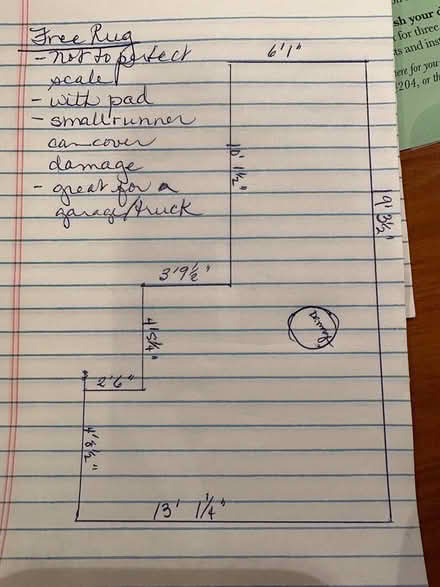 Free Rug
- Not to perfect
scale
- with pad
- small runner
can cover
damage
- great for a
garage/truck
6'1"
10' 1½"
19' 3½"
3'9½"
4'5¼"
2'6"
4'8½"
13' 1¼"
sh your
for three
ts and ins
here for you
204, or th